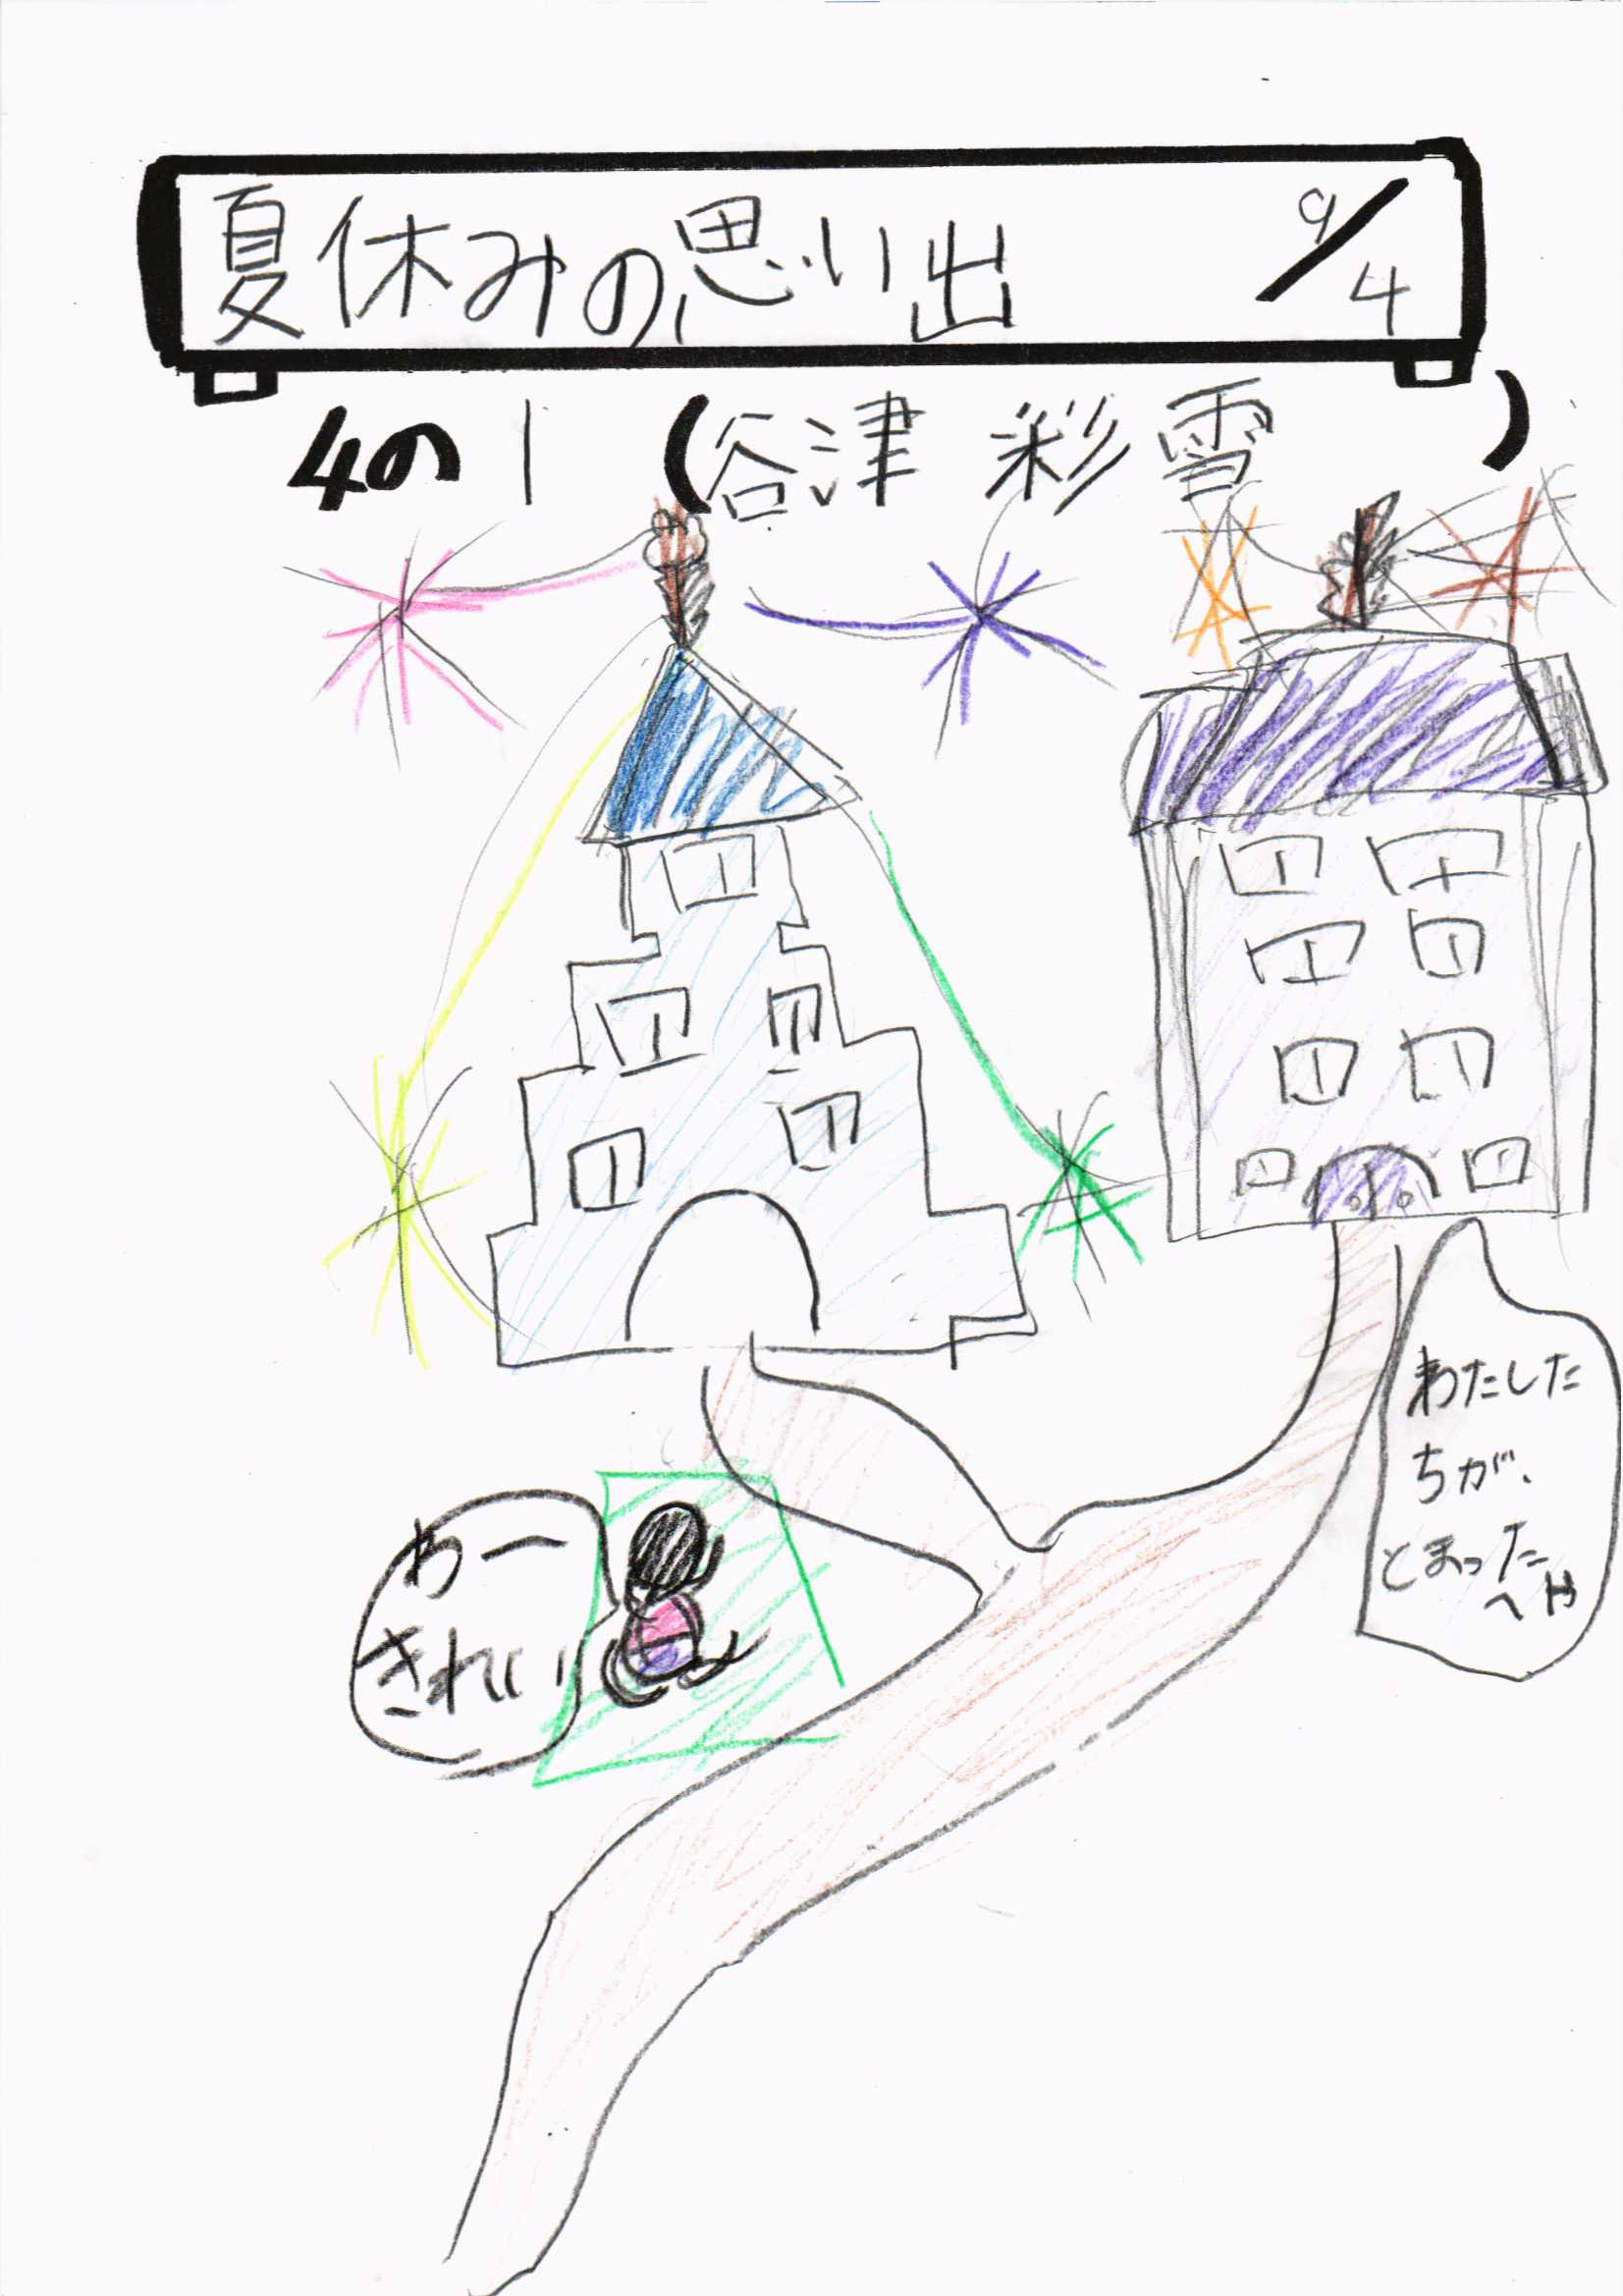 夏休みの思い出 9/4
4の1(谷津 彩雪)
わたした
ちが、
とまった
へや
わー
きれい